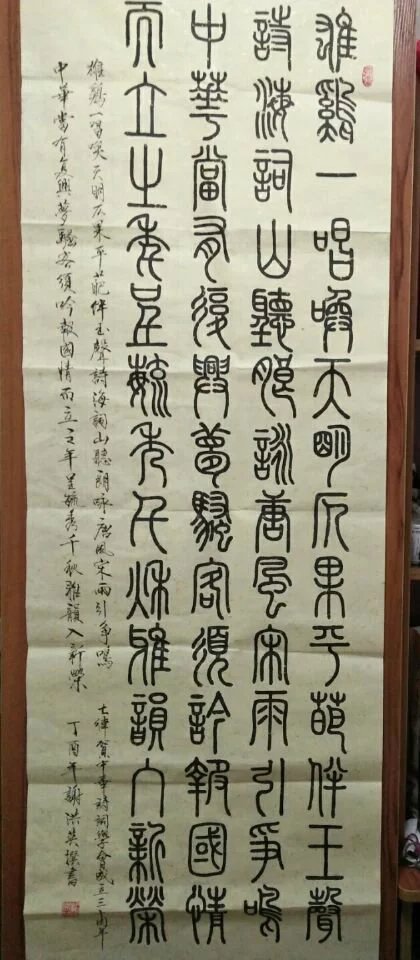 雄鷄一唱喚天明仄果平葩伴玉聲
詩海詞山聽朗詠唐風宋雨引爭鳴
中華當有復興夢騷客須吟報國情
而立之年呈毓秀千秋雅韻入新榮
雄鷄一唱喚天明仄果平葩伴玉聲詩海詞山聽朗咏唐風宋雨引爭鳴 七律 賀中華詩詞學會成立三十周年
中華當有复興夢騷客須吟報國情而立之年呈毓秀千秋雅韻入新榮 丁酉年謝洪英撰書